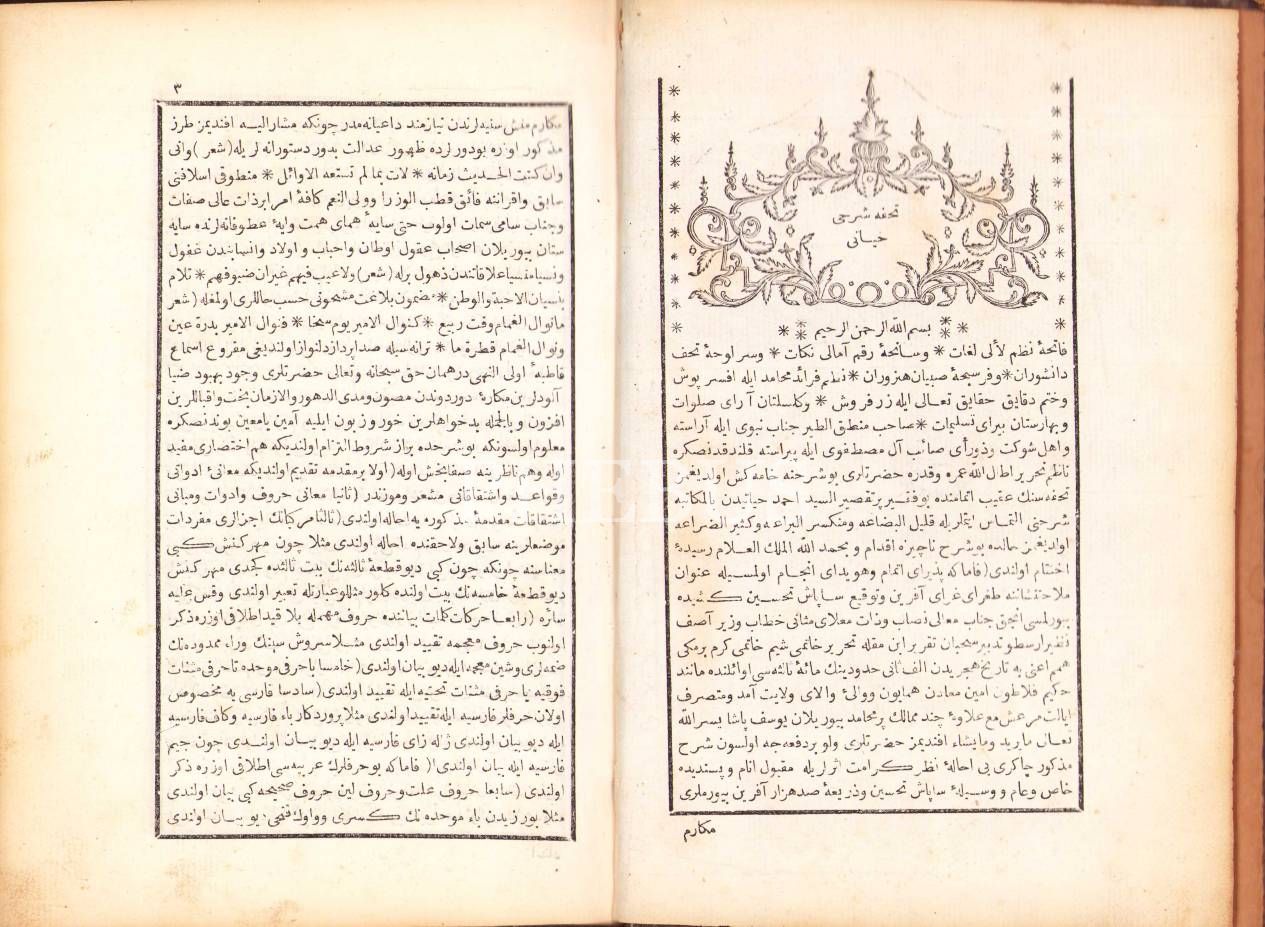 تحفه شرحی
حیاتی
بسم الله الرحمن الرحیم
فاتحهٔ نظم لآلی لغات * وسانحهٔ رقیم آمالی نکات * وسر لوحهٔ تحف
دانشوران * وفر سبحهٔ صبیان هنروران * نظم فرائد محامد ایله افسر پوش
وختم دقایق حقایق تعالی ایله زر فروش * وکلستان آرای صلوات
وبهارستان پیرای تسلیمات * صاحب منطق الطیر جناب نبوی ایله آراسته
واهل شوکت وذورأی صائب آل مصطفوی ایله پیراسته قلندقدنصکره
ناظم نحریر اطال الله عمره وقدره حضرتلری بوشرحنه خامه کش اولدیغمز
تحفه سنک عقیب اتمامنده بو فقیر پر تقصیر السید احمد حیاتیدن بالمکاتبه
شرحنی التماس ایتملریله قلیل البضاعه ومنکسر الیراعه وکثیر الضراعه
اولدیغمز حالده بو شرح ناچیزه اقدام وبحمد الله الملک العلام رسیدهٔ
اختتام اولندی (فاما که پذیرای اتمام وهویدای انجام اولمسیله عنوان
ملاحقشاننه طغرای غرای آفرین وتوقیع ساپاش تحسین کشیده
بیورلمسی انجق جناب معالی نصاب وذات معلای مثانی خطاب وزیر آصف
نظیر ارسطو تدبیر سحبان تقریر ابن مقله تحریر خاتمی شیم خاتمی کرم برمکی
همم اعنی به تاریخ هجریدن الف ثانی حدودینک مائهٔ ثالثه سی اوائلنده مانند
حکیم فلاطون امین معادن همایون ووالیٔ والای ولایت آمد ومتصرف
ایالت مرعش مع علاوهٔ چند ممالک پر محامد بیوریلان یوسف پاشا یسر الله
تعالی مایرید ومایشاء افندیمز حضرتلری ولو بر دفعه جه اولسون شرح
مذکور چاکری بی احالهٔ انظر کرامت اثرلریله مقبول انام وپسندیده
خاص وعام ووسیلهٔ ساپاش تحسین وذریعهٔ صد هزار آفرین بیورملری
مکارم
٣
مکارم منش سنیه لرندن نیازمند داعیانه مدر چونکه مشار الیه افندیمز طرز
مذکور اوزره بودورلرده ظهور عدالت بدور دستورانه لریله (شعر) وانی
وان کنت الحدیث زمانه * لات بما لم تستطعه الاوائل * منطوقی اسلافنی
سابق واقراننه فائق قطب الوزرا وولی النعم کافهٔ امرا بر ذات عالی صفات
وجناب سامی سمات اولوب حتی سایهٔ همای همت وایهٔ عطوفانه لرنده سایه
ستان بیوریلان اصحاب عقول اوطان واحباب واولاد وانسابندن غفول
ونسیا منسیا علاقاتندن ذهول برله (شعر) ولا عیب فیهم غیران ضیوفهم * تلام
بنسیان الاحبة والوطن * مضمون بلاغت مشحونی حسب حاللری اولمغله (شعر
مانوال الغمام وقت ربیع * کنوال الامیر یوم سخا * فنوال الامیر بدرة عین
ونوال الغمام قطرة ما * ترانه سیله صدا پرداز دلنواز اولندیغی مقروع اسماع
قاطبهٔ اولی النهی در همان حق سبحانه وتعالی حضرتلری وجود بهبود ضیا
آلودلرین مکارهٔ دوردوندن مصون ومدی الدهور والازمان بخت واقباللرین
افزون وبالجمله بدخواهلرین خوار وزبون ایلیه آمین یا معین بوندنصکره
معلوم اولسونکه بوشرحده براز شروط التزام اولندیکه هم اختصاری مفید
اوله وهم ناظرینه صفابخش اوله (اولا بر مقدمه تقدیم اولندیکه معانیٔ ادواتی
وقواعد واشتقاقاتی مشعر وموزندر (ثانیا معانی حروف وادوات ومبانی
اشتقاقات مقدمهٔ مذکوره یه احاله اولندی (ثالثا مرکباتک اجزالری مفردات
موضعلرینه سابق ولاحقنده احاله اولندی مثلا چون مهر کنش کبی
معناسنه چونکه چون کبی دیو قطعهٔ ثالثه نک بیت ثالثده کچدی مهر کنش
دیو قطعهٔ خامسه نک بیت اولنده کلور مثللو عبارتله تعبیر اولندی وقس علیه
سائره (رابعا حرکات کلمات بیاننده حروف مهمله بلا قید اطلاقی اوزره ذکر
اولنوب حروف معجمه تقیید اولندی مثلا سروش سینک وراء ممدوده نک
ضمه لری وشین معجمه ایله دیو بیان اولندی (خامسا با حرفی موحده تا حرفی مثنات
فوقیه یا حرفی مثنات تحتیه ایله تقیید اولندی (سادسا فارسی یه مخصوص
اولان حرفلر فارسیه ایله تقیید اولندی مثلا پروردکار باء فارسیه وکاف فارسیه
ایله دیو بیان اولندی ژاله زای فارسیه ایله دیو بیان اولندی چون جیم
فارسیه ایله بیان اولندی (فاما که بو حرفلرک عربیه سی اطلاقی اوزره ذکر
اولندی (سابعا حروف علت وحروف لین حروف صحیحه کبی بیان اولندی
مثلا بور زیدن باء موحده نک کسری وواوک فتحی دیو بیان اولندی